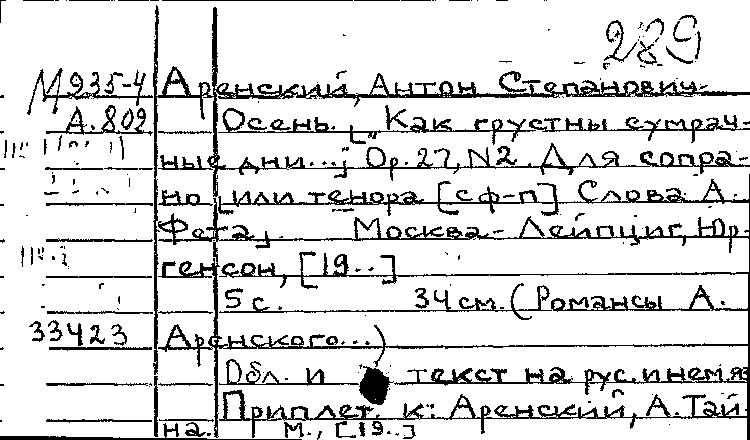 289
М935-4 Аренский, Антон Степанович.
А.802 Осень. „Как грустны сумрач-
ные дни...“ Ор.27, N2. Для сопра-
но или тенора [с ф-п] Слова А.
Фета. Москва - Лейпциг, Юр-
генсон, [19..]
5 с. 34 см. (Романсы А.
33423 Аренского...)
Обл. и текст на рус. и нем. яз
Приплет. к: Аренский, А. Тай-
на. М., [19..]